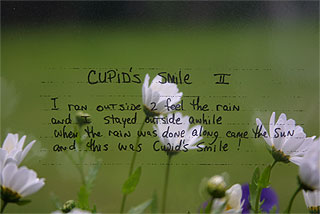 CUPID'S Smile II
I ran outside 2 feel the rain
and I stayed outside awhile
when the rain was done along came the SUN
and this was Cupid's Smile !